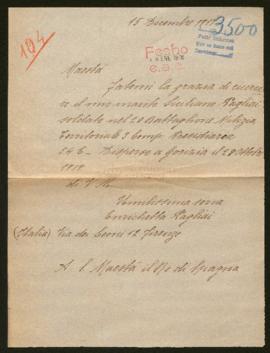 15 Dicembre 1917
194
3500
Fecho
Maestà
Fatemi la grazia di cercare
il mio marito Giuliano Pagliai
soldato nel 20 Battaglione Milizia
Territoriale 3 Comp.
246 - Disperso a Gorizia il 28 Ottobre
1917
di V. M.
Umilissima serva
Enrichetta Pagliai
(Italia) Via dei Serri 12 Firenze
A S. Maestà il Re di Spagna